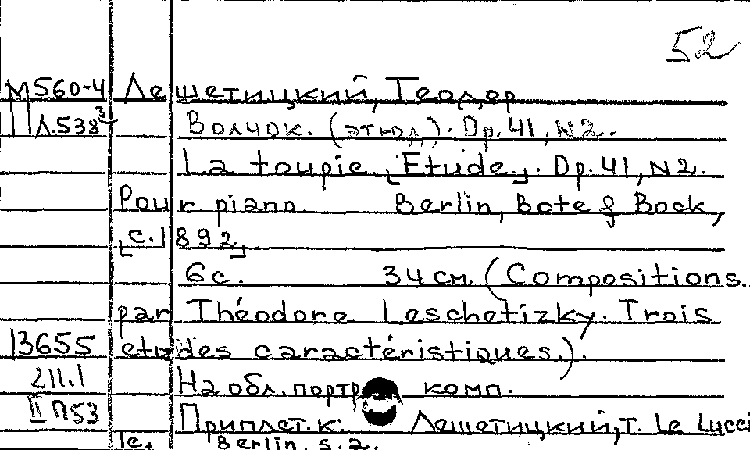 52
М560-4 Лешетицкий, Теодор
Л.538 Волчок. (этюд). Op. 41, N2.
La toupie [Etude]. Op. 41, N2.
Pour piano. Berlin, Bote & Bock,
[c.1892].
6 с. 34 см. (Compositions
par Théodore Leschetizky. Trois
13655 etudes caractéristiques.).
211.1 На обл. портр. комп.
II П53 Приплет. к: Лешетицкий, Т. Le Lucci
Berlin, s.a.